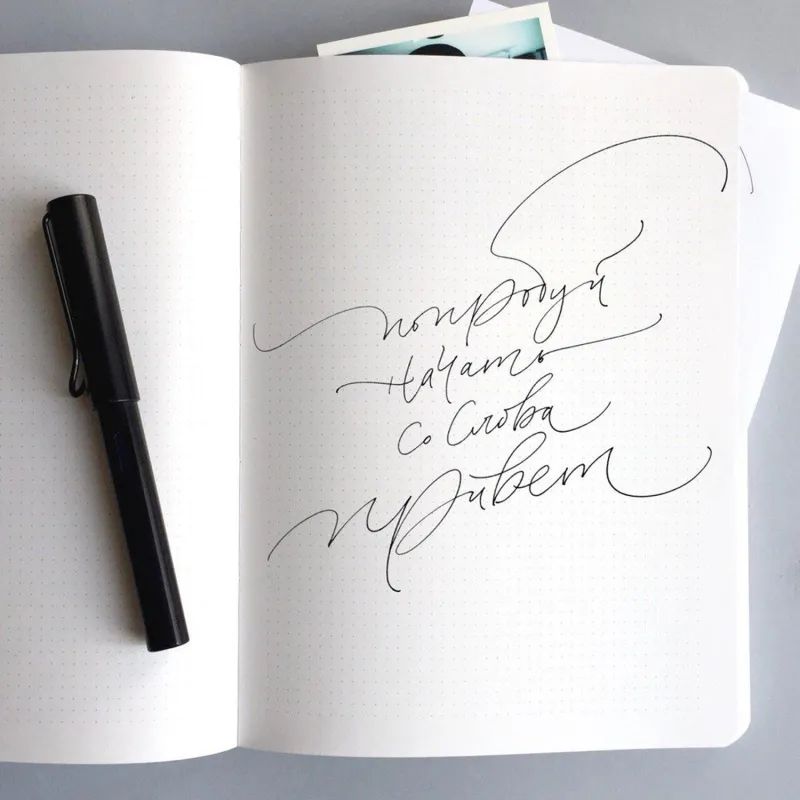 попробуй
начать
со слова
привет